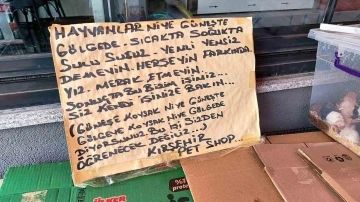 HAYVANLAR NİYE GÜNEŞTE
GÖLGEDE. SICAKTA SOĞUKTA
SULU SUSUZ. YEMLİ YEMSİZ
DEMEYİN. HERŞEYİN FARKINDA
YIZ. MERAK ETMEYİN...
SONUÇTA BU BİZİM İŞİMİZ...
SİZ KENDİ İŞİNİZE BAKIN...
(GÜNEŞE KOYSAK NİYE GÜNEŞTE
GÖLGEYE KOYSAK NİYE GÖLGEDE
DİYORSUNUZ. BU İŞİ SİZDEN
ÖĞRENECEK DEĞİLİZ...)
KIRŞEHİR
PET SHOP...
ÜLKER
%3
prote